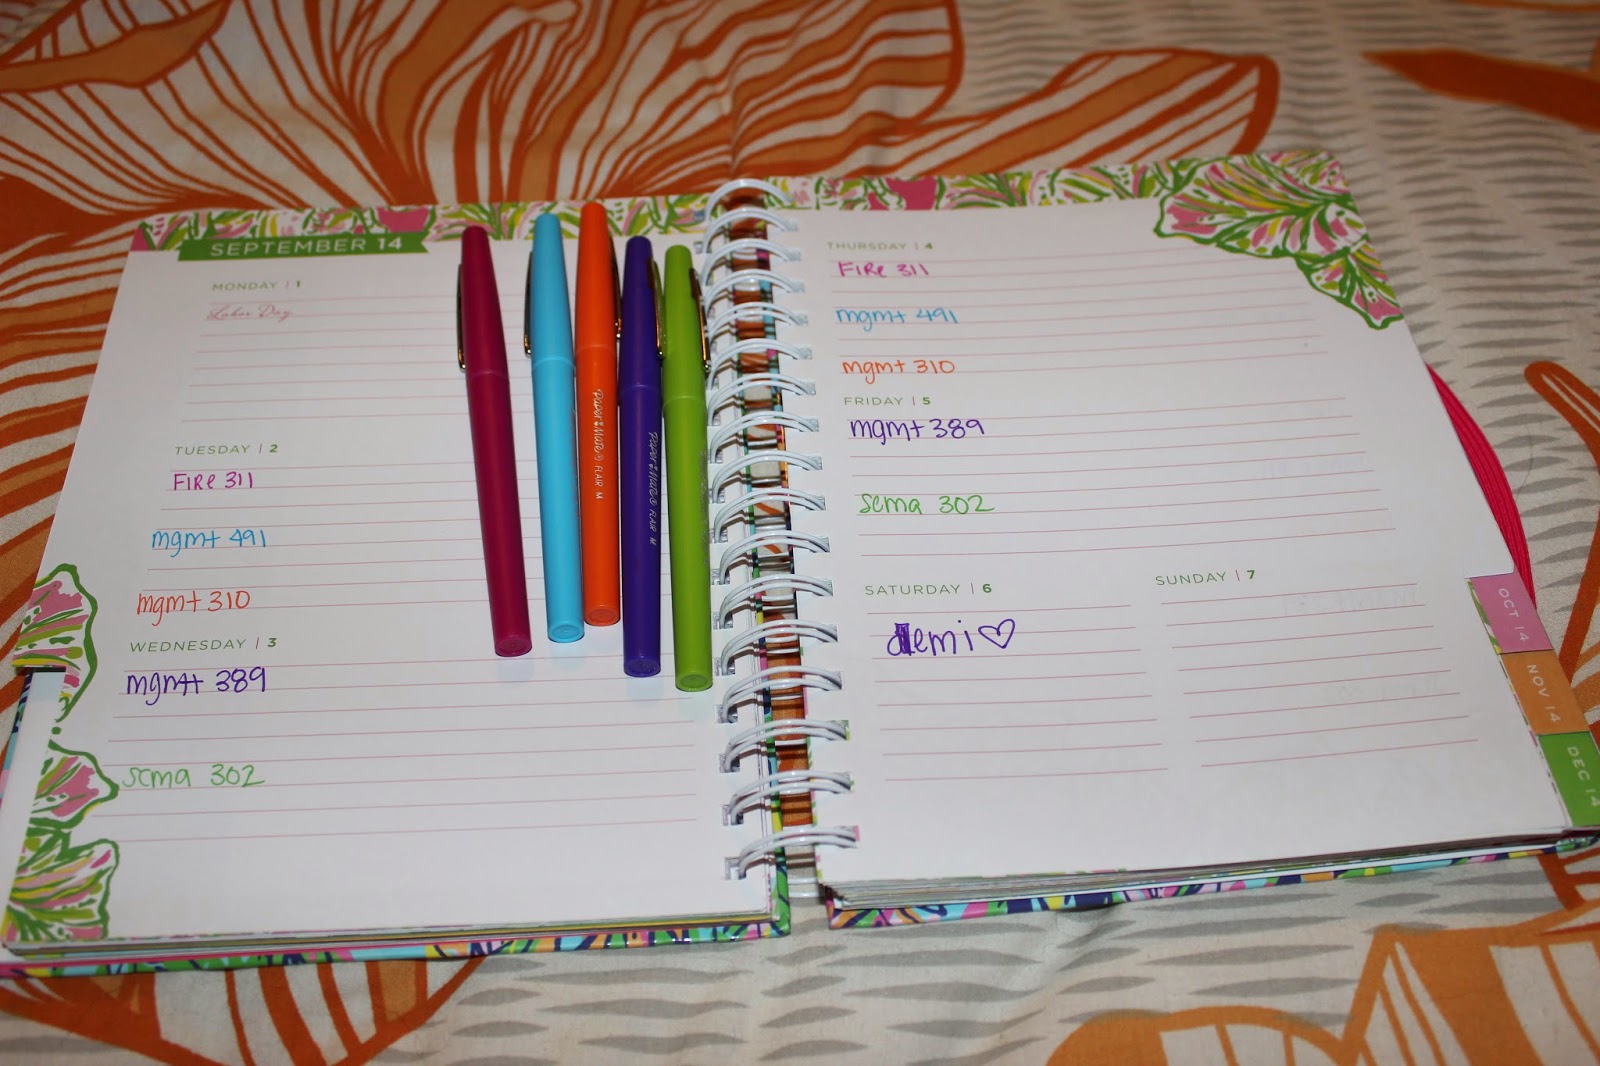 SEPTEMBER 14
MONDAY | 1
Labor Day
TUESDAY | 2
FIRE 311
mgmt 491
mgmt 310
WEDNESDAY | 3
mgmt 389
sema 302
Paper:Mate® FLAIR M
Paper:Mate® FLAIR M
THURSDAY | 4
FIRE 311
mgmt 491
mgmt 310
FRIDAY | 5
mgmt 389
sema 302
SATURDAY | 6
demi♡
SUNDAY | 7
OCT 14
NOV 14
DEC 14